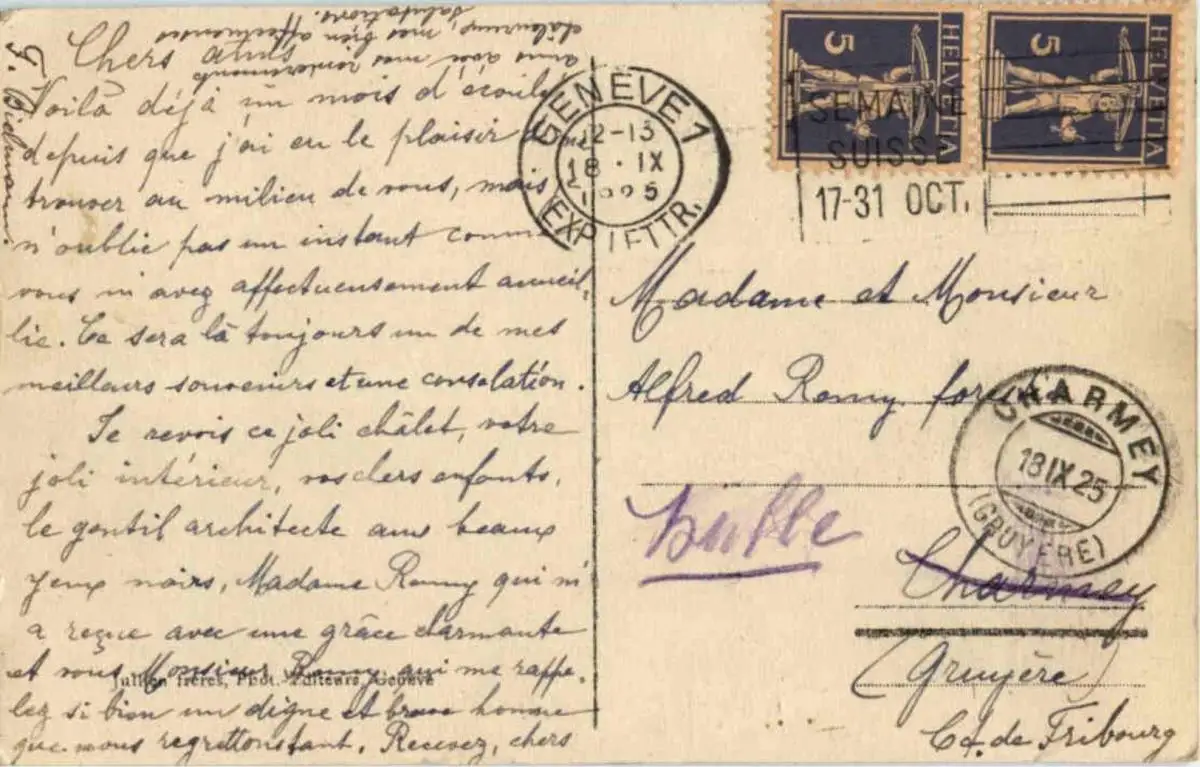 Chers amis
Voilà déjà un mois d'écoulé
depuis que j'ai eu le plaisir de me
trouver au milieu de vous, mais
n'oublie pas un instant comme
vous m'avez affectueusement accueil-
lie. Ce sera là toujours un de mes
meilleurs souvenirs et une consolation.
Je revois ce joli châlet, votre
joli intérieur, vos chers enfants,
le gentil architecte aux beaux
yeux noirs, Madame Remy qui m'
a reçue avec une grâce charmante
et vous Monsieur Remy qui me rappe-
lez si bien un digne et brave homme
que nous regrettons tant. Recevez, chers
amis avec mes remerciements
chaleureux, mes bien affectueuses
salutations.
Jullien frères, Phot. Editeurs, Genève
GENÈVE 1
12-13
18 · IX
1925
EXP. LETTR.
HELVETIA
5
HELVETIA
5
SEMAINE
SUISSE
17-31 OCT.
Madame et Monsieur
Alfred Remy
CHARMEY
18 IX 25
(GRUYÈRE)
Bulle
Charmey
(Gruyère)
Ct. de Fribourg